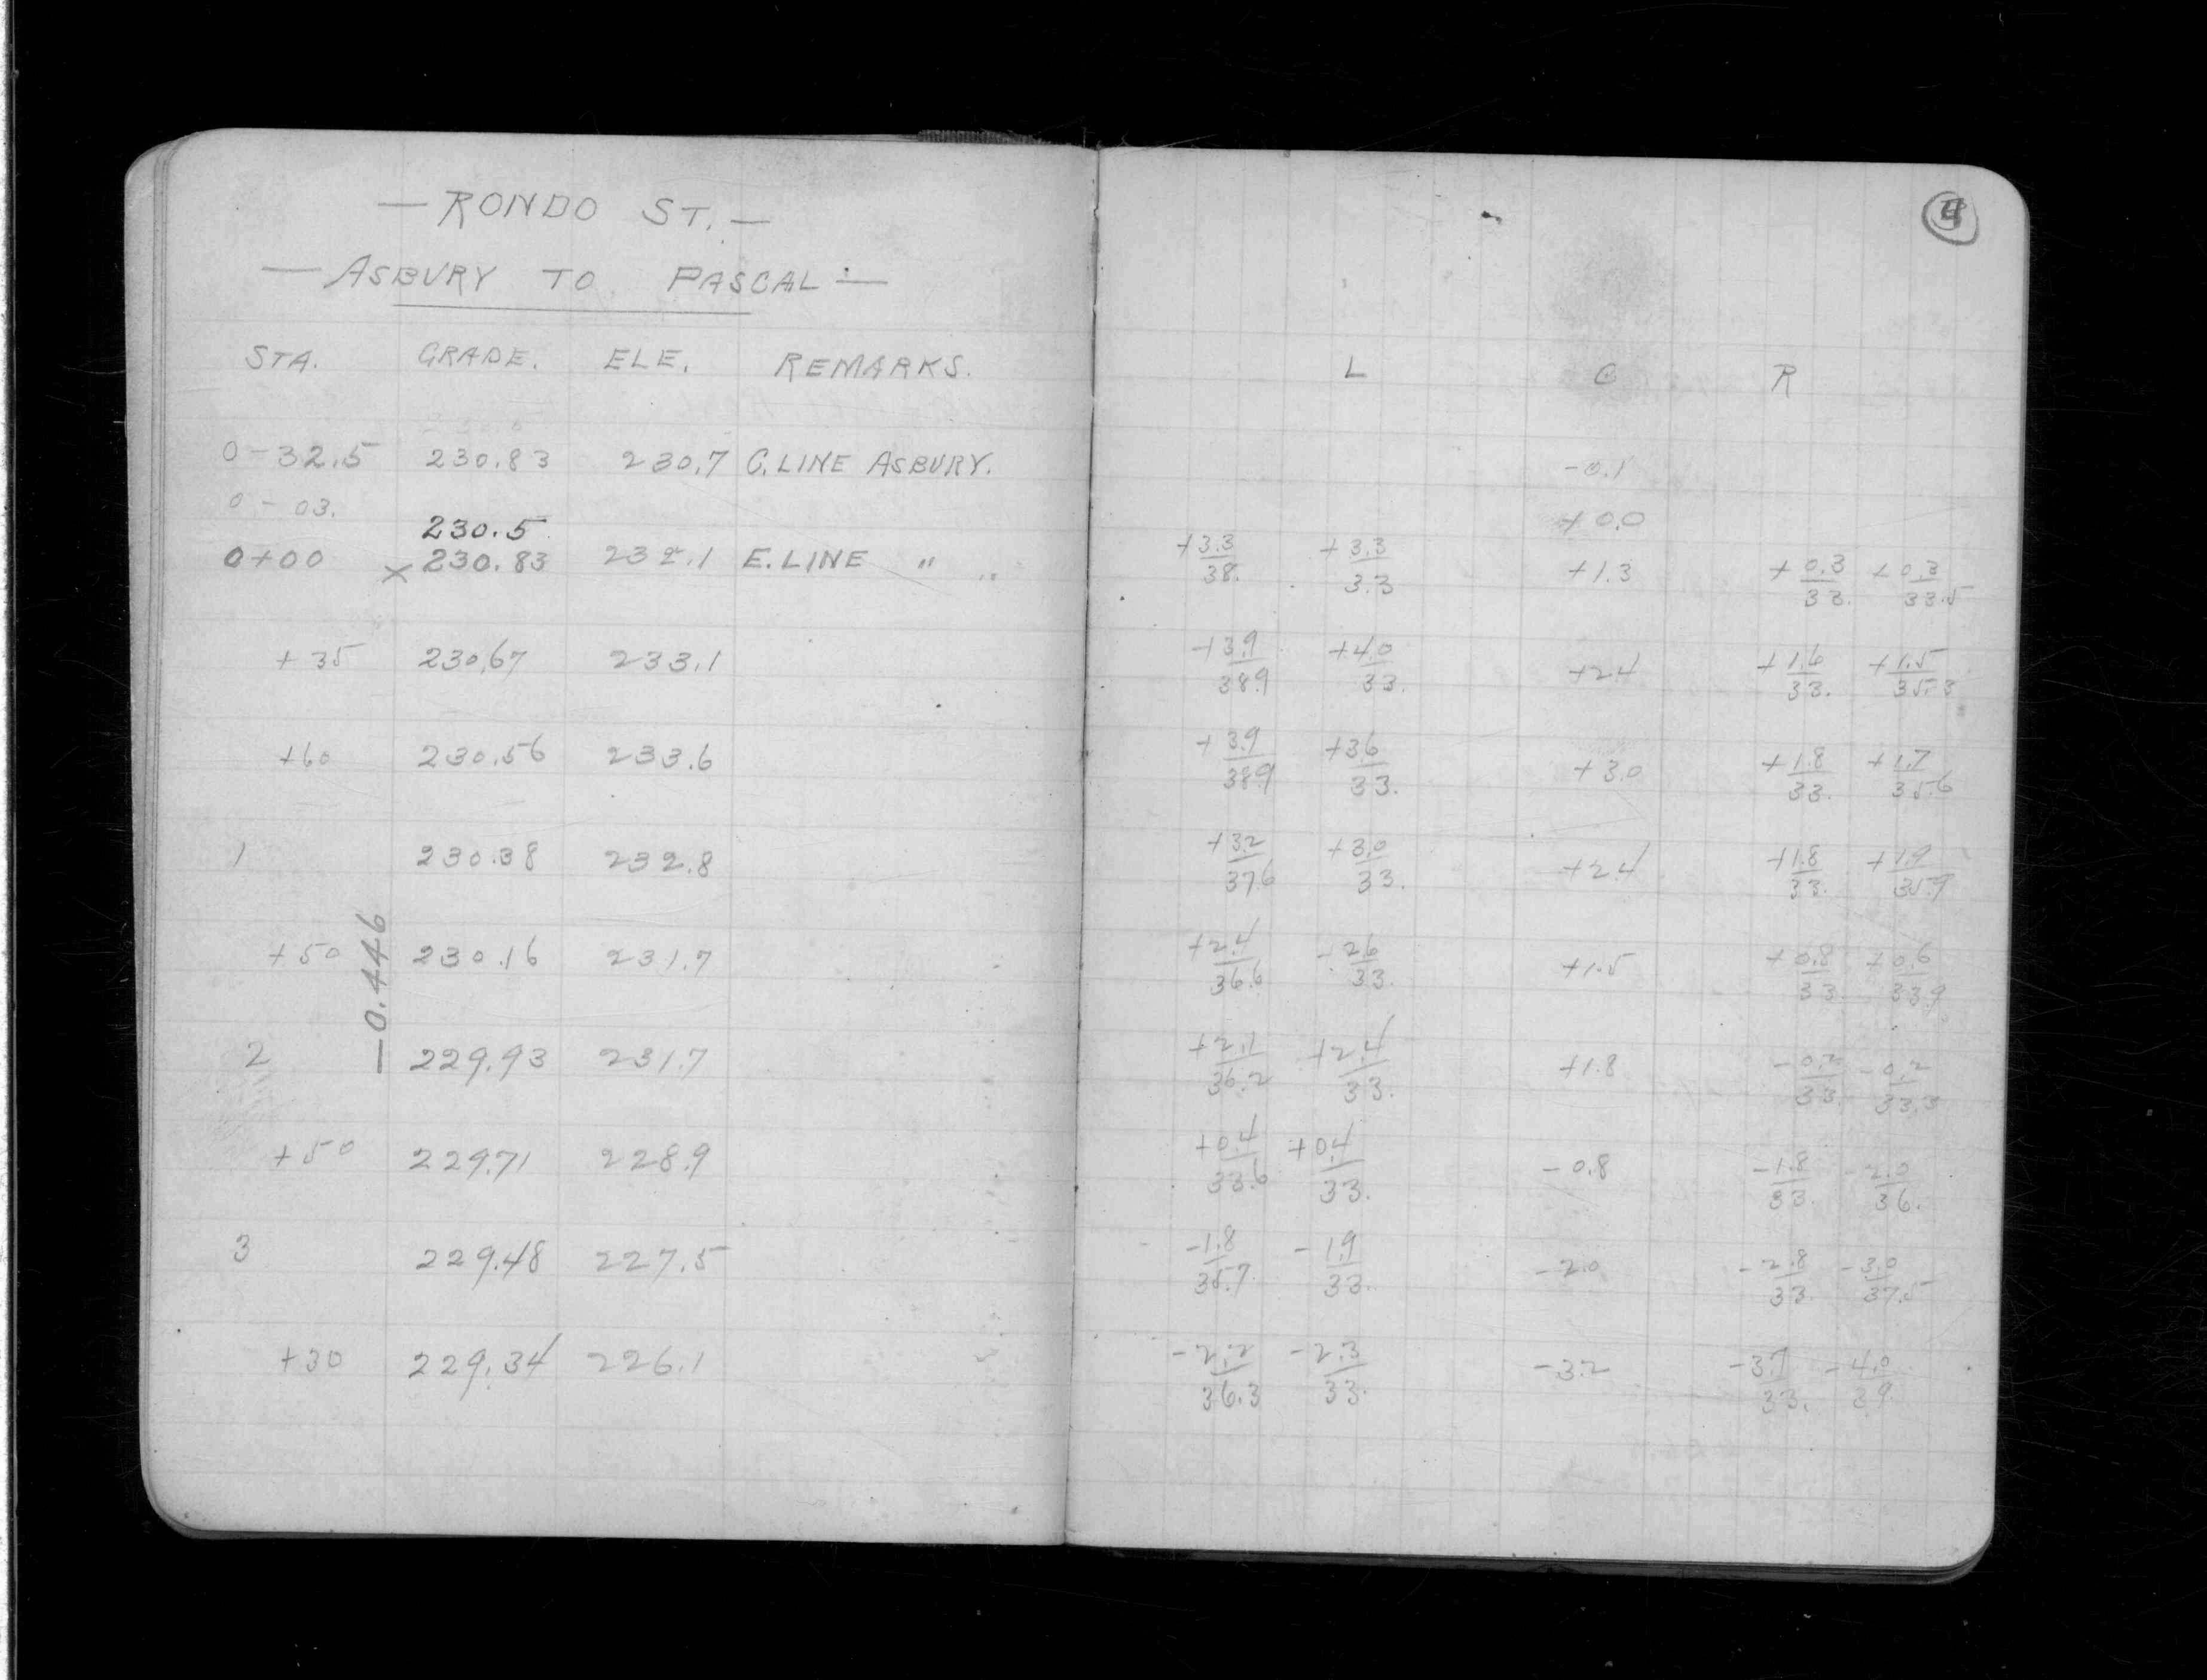 — RONDO ST. —
— ASBURY TO PASCAL —
STA. GRADE. ELE. REMARKS.
0-32.5 230.83 230.7 C. LINE ASBURY.
0-03.
230.5
0+00 × 230.83 232.1 E. LINE " "
+35 230.67 233.1
+60 230.56 233.6
1 230.38 232.8
+50 230.16 231.7
—0.446
2 229.93 231.7
+50 229.71 228.9
3 229.48 227.5
+30 229.34 226.1
L C R
-0.1
+0.0
+3.3/38. +3.3/33 +1.3 +0.3/33. +0.3/33.5
+3.9/38.9 +4.0/33. +2.4 +1.6/33. +1.5/35.3
+3.9/38.9 +3.6/33. +3.0 +1.8/33. +1.7/35.6
+3.2/37.6 +3.0/33. +2.4 +1.8/33. +1.9/35.9
+2.4/36.6 +2.6/33. +1.5 +0.8/33. +0.6/33.9
+2.1/36.2 +2.4/33. +1.8 -0.2/33. -0.2/33.3
+0.4/33.6 +0.4/33. -0.8 -1.8/33. -2.0/36.
-1.8/35.7 -1.9/33. -2.0 -2.8/33. -3.0/37.5
-2.2/36.3 -2.3/33. -3.2 -3.7/33. -4.0/39.